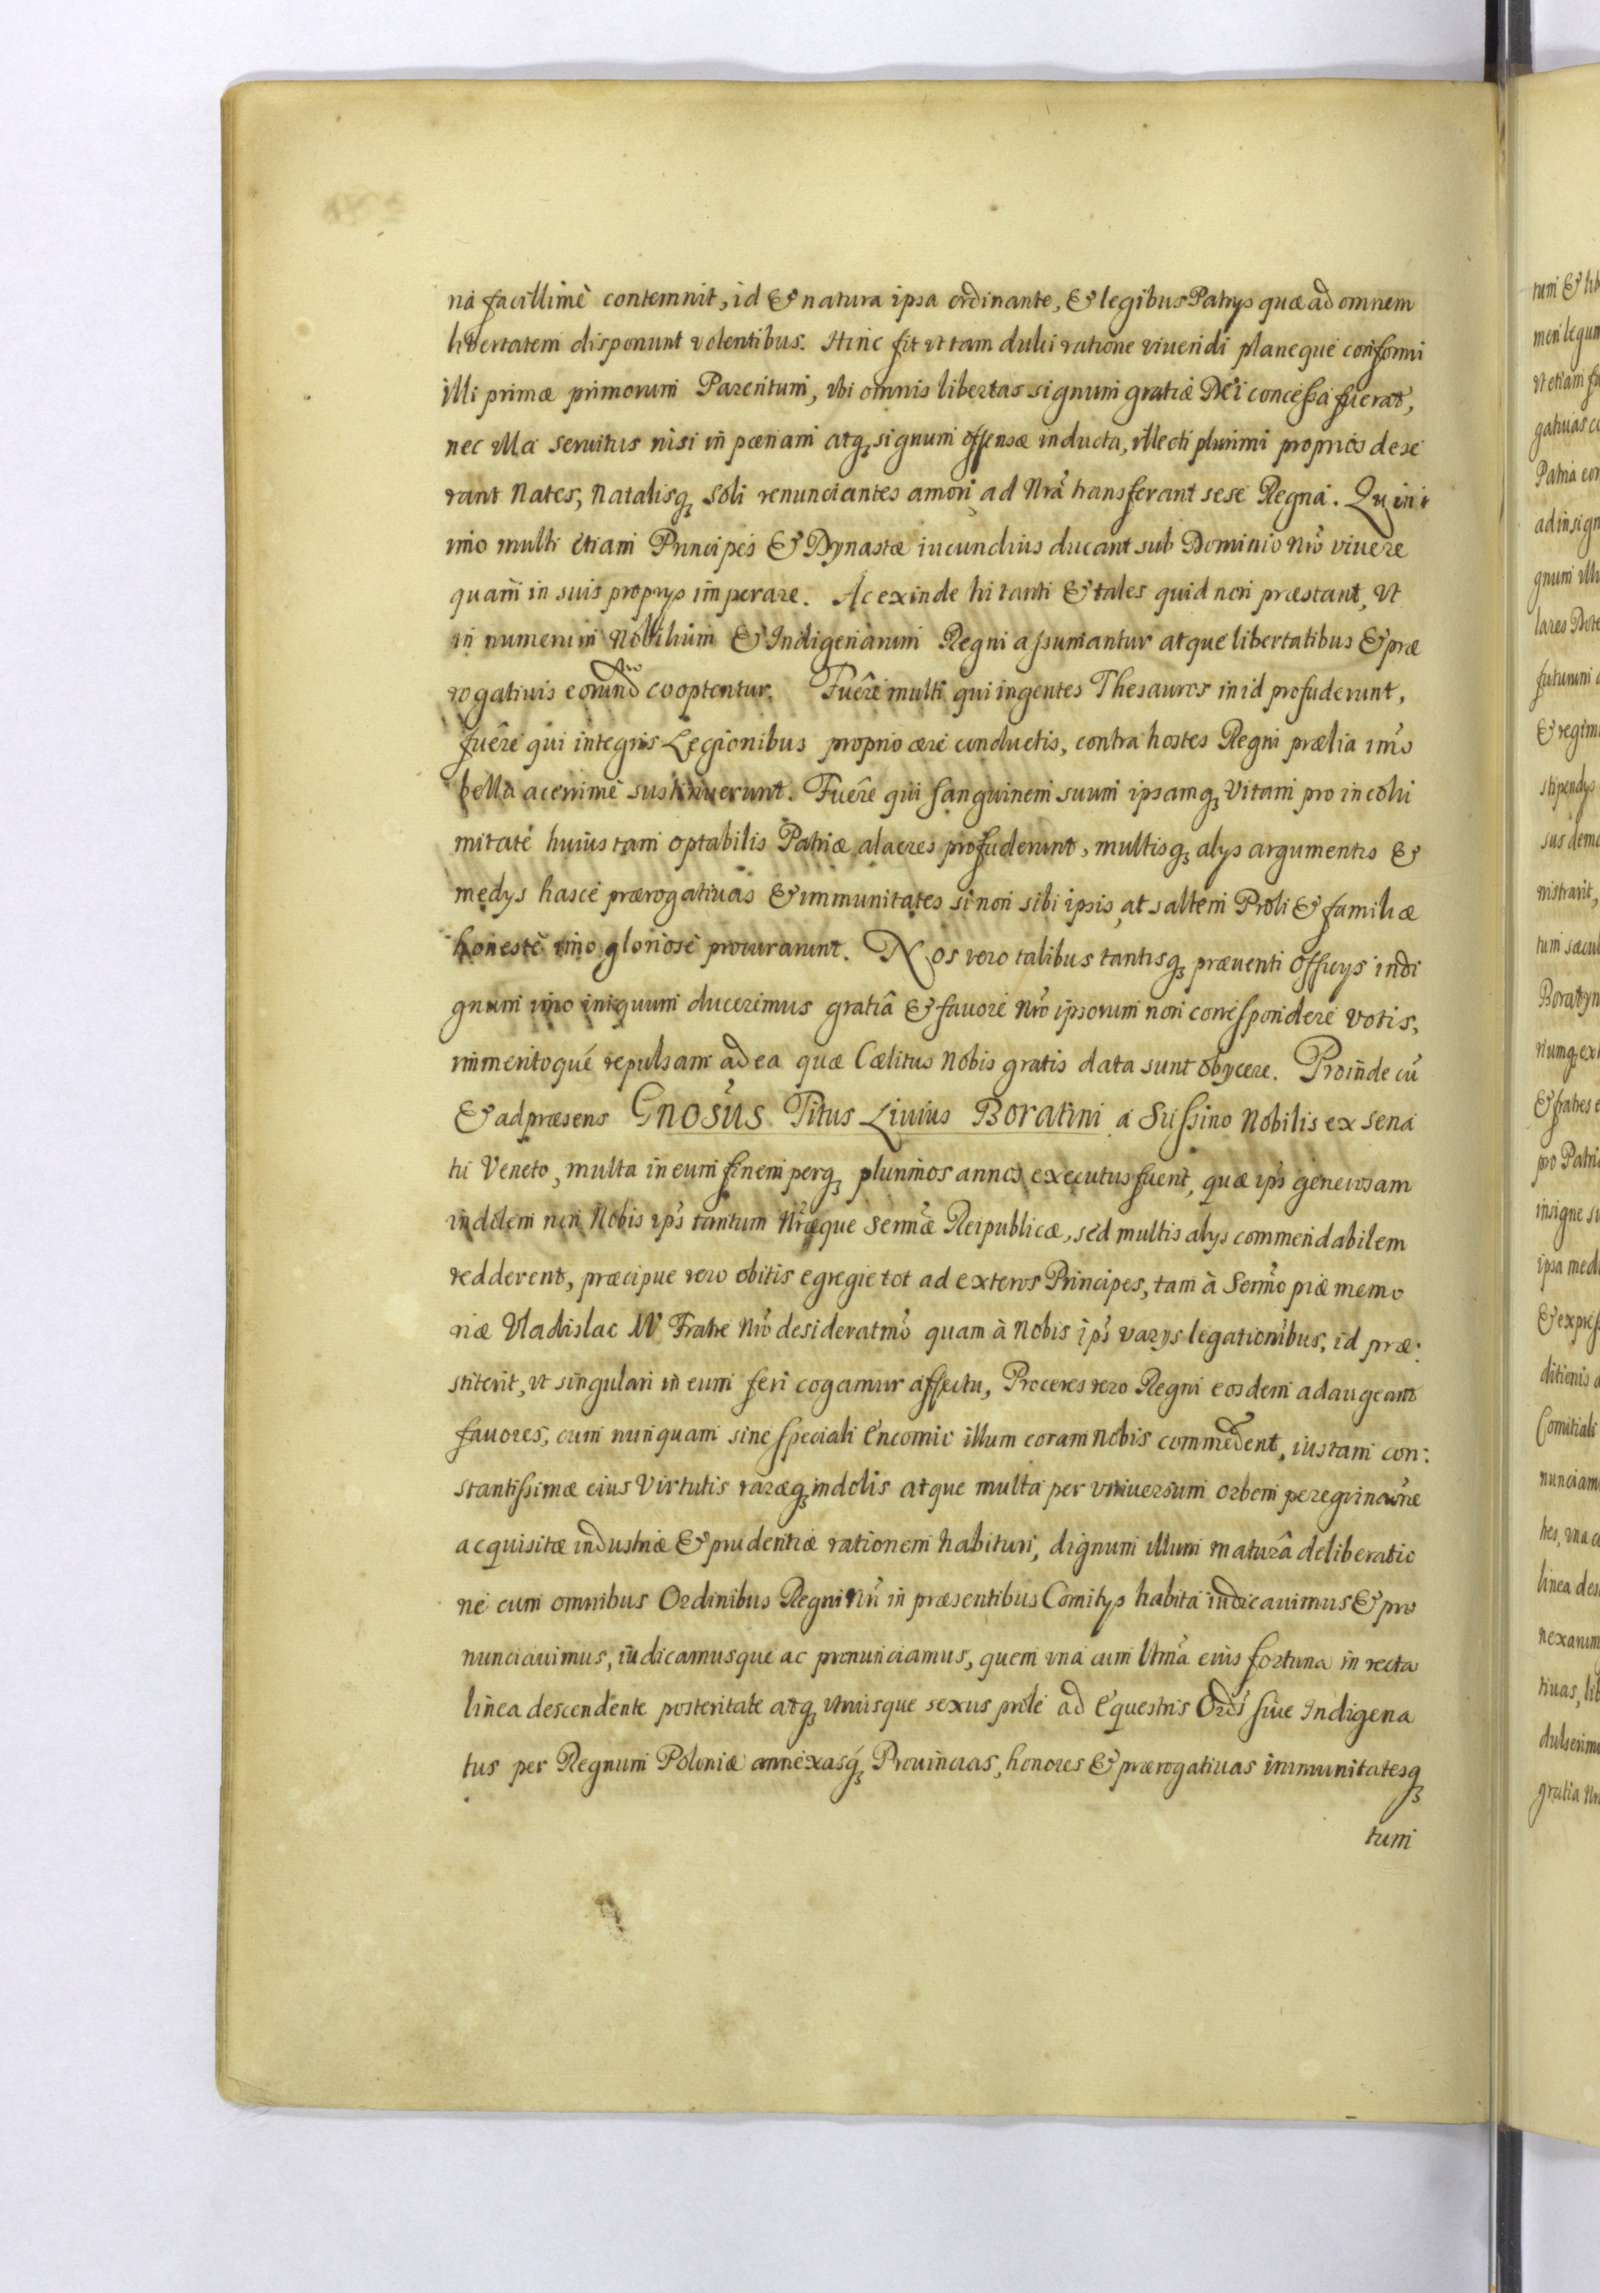 na facillimè contemnit, id & natura ipsa ordinante, & legibus Patrys quæ ad omnem
libertatem disponunt volentibus. Hinc fit vt tam dulci ratione viuendi planeque conformi
illi primæ primorum Parentum, vbi omnis libertas signum gratiæ Dei concessa fuerat,
nec vlla seruitus nisi in pœnam atq₃ signum offensæ inducta, illecti plurimi proprios dese
rant Nates, Natalisq₃ soli renunciantes amori ad Nrã transferant sese Regna. Quini
mo multi etiam Principes & Dynastæ iucundius ducant sub Dominio Nrõ viuere
quam in suis proprys imperare. Ac exinde hi tanti & tales quid non præstant, vt
in numerum Nobilium & Indigenarum Regni assumantur atque libertatibus & præ
rogatiuis eorund cooptentur. Fuêre multi qui ingentes Thesauros in id profuderunt,
fuêre qui integris Legionibus proprio ære conductis, contra hostes Regni prælia imõ
bella acerrimè sustinuerunt. Fuêre qui sanguinem suum ipsamq₃ vitam pro incolu
mitate huius tam optabilis Patriæ alacres profuderunt, multisq₃ alys argumentis &
medys hasce prærogatiuas & immunitates si non sibi ipsis, at saltem Proli & familiæ
honestè imo gloriosè procurarunt. Nos vero talibus tantisq₃ præuenti officys indi
gnum imo iniquum duceremus gratiâ & fauore Nrõ ipsorum non correspondere votis,
immeritoque repulsam ad ea quæ Cœlitus Nobis gratis data sunt obycere. Proinde cũ
& ad præsens Gnosus Titus Liuius Boratini a Sussino Nobilis ex Sena
tu Veneto, multa in eum finem perq₃ plurimos annos executus fuerit, quæ ips generosam
indolem non Nobis ips tantum Nræque Sermæ Reipublicæ, sed multis alys commendabilem
redderent, præcipue vero obitis egregie tot ad exteros Principes, tam à Sermo piæ memo
riæ Vladislao IV Fratre Nrõ desideratmõ quam à Nobis ips varys legationibus, id præ:
stiterit, vt singulari in eum feri cogamur affectu, Proceres vero Regni eosdem adaugeant
fauores, cum nunquam sine speciali Encomio illum coram Nobis commedent, iustam con:
stantissimæ eius Virtutis raræq₃ indolis atque multa per vniuersum orbem peregrinaõne
acquisitæ industriæ & prudentiæ rationem habituri, dignum illum maturâ deliberatio
ne cum omnibus Ordinibus Regni Nri in præsentibus Comitys habita iudicauimus & pro
nunciauimus, iudicamusque ac pronunciamus, quem vna cum Vtmã eius fortuna in recta
linea descendente posteritate atq₃ vtriusque sexus prole ad Equestris Ords siue Indigena
tus per Regnum Poloniæ annexasq₃ Prouincias, honores & prærogatiuas immunitatesq₃
tum